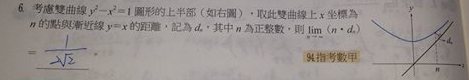 6. 考慮雙曲線 y²-x²=1 圖形的上半部（如右圖），取此雙曲線上 x 坐標為
n 的點與漸近線 y=x 的距離，記為 dₙ，其中 n 為正整數，則 lim (n·dₙ)
n→∞
= 1/2√2 。
94.指考數甲
y
y=x
dₙ
n
x